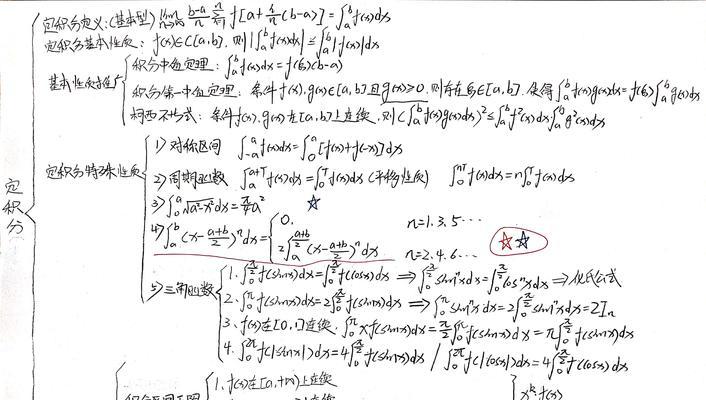 定积分
定积分定义:(基本型) lim n→∞ b-a/n Σ i=1 n f[a+i/n(b-a)]=∫_a^b f(x)dx
定积分基本性质: f(x)∈C[a,b], 则|∫_a^b f(x)dx|≦∫_a^b|f(x)|dx
基本性质
积分中值定理: ∫_a^b f(x)dx=f(ξ)(b-a)
积分第一中值定理: 条件f(x),g(x)∈[a,b]且g(x)≥0,则存在ξ∈[a,b],使得∫_a^b f(x)g(x)dx=f(ξ)∫_a^b g(x)dx
柯西不等式: 条件f(x),g(x)在[a,b]上连续,则(∫_a^b f(x)g(x)dx)²≤∫_a^b f²(x)dx∫_a^b g²(x)dx
定积分特殊性质
1) 对称区间 ∫_{-a}^a f(x)dx=∫_0^a[f(x)+f(-x)]dx
2) 周期函数 ∫_a^{a+T} f(x)dx=∫_0^T f(x)dx (平移性质) ∫_0^{nT} f(x)dx=n∫_0^T f(x)dx
3) ∫_0^a √(a²-x²)dx=π/4 a² ☆
4) ∫_a^b (x-(a+b)/2)^n dx= { 0. n=1.3.5…
2∫_a^{(a+b)/2} (x-(a+b)/2)^n dx n=2.4.6… ☆☆
5) 三角函数
1. ∫_0^{π/2} f(sinx)dx=∫_0^{π/2} f(cosx)dx ⇒ ∫_0^{π/2} sin^n x dx=∫_0^{π/2} cos^n x dx ⇒ 华氏公式
2. ∫_0^π f(sinx)dx=2∫_0^{π/2} f(sinx)dx ⇒ ∫_0^π sin^n x dx=2∫_0^{π/2} sin^n x dx=2I_n
3. f(x)在[0,1]连续, ∫_0^π xf(sinx)dx=π/2∫_0^π f(sinx)dx=π∫_0^{π/2} f(sinx)dx
4. ∫_0^{2π} f(|sinx|)dx=4∫_0^{π/2} f(sinx)dx / ∫_0^{2π} f(|cosx|)dx=4∫_0^{π/2} f(cosx)dx
1. f(x)在[a,+∞)上连续
x^k·f(x)